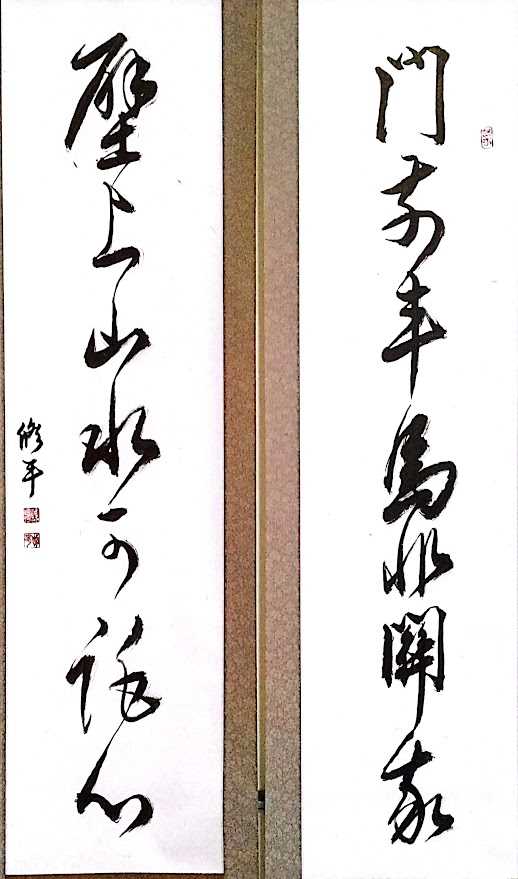 門前車馬非關我
壁上山水可心
修平